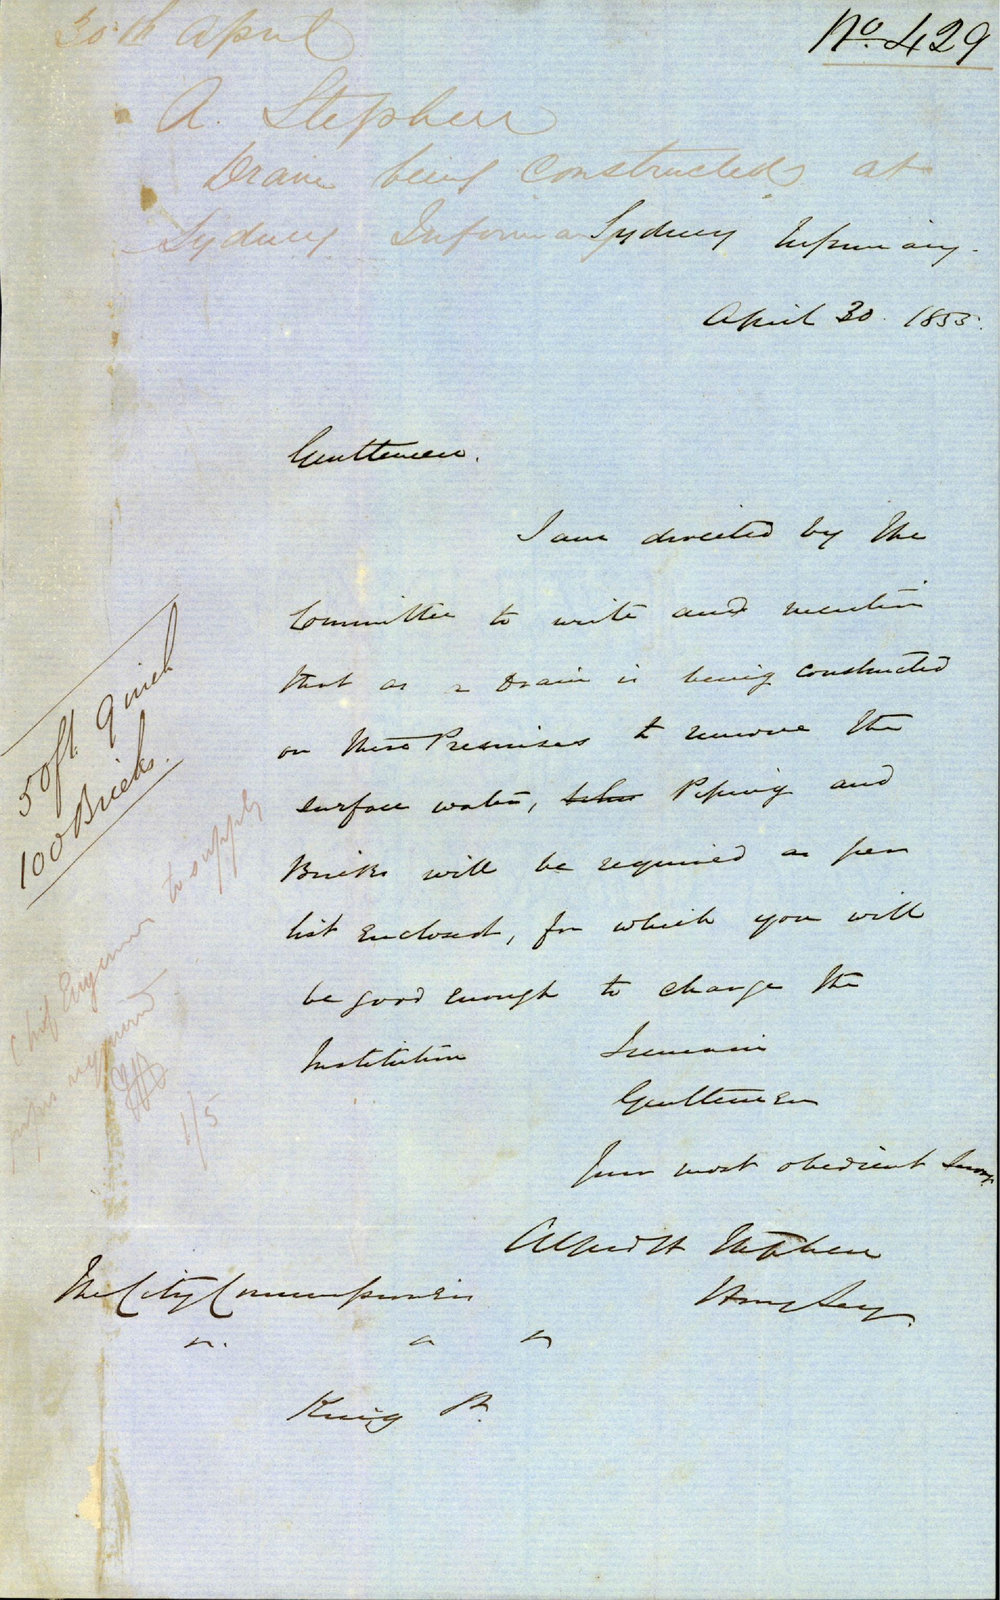 No. 429
30th April
A. Stephen
Drain being constructed at
Sydney Infirmary
Sydney Infirmary.
April 30. 1855.
Gentlemen.
I am directed by the
Committee to write and mention
that as a Drain is being constructed
on these Premises to remove the
surface water, Piping and
Bricks will be required as per
list enclosed, for which you will
be good enough to charge the
Institution
I remain
Gentlemen
Your most obedient Servt.
Alfred H Stephen
Hony Secy.
The City Commissioners
King St.
50 ft. 9 inch
100 Bricks.
Chief Engineer to supply
1/5